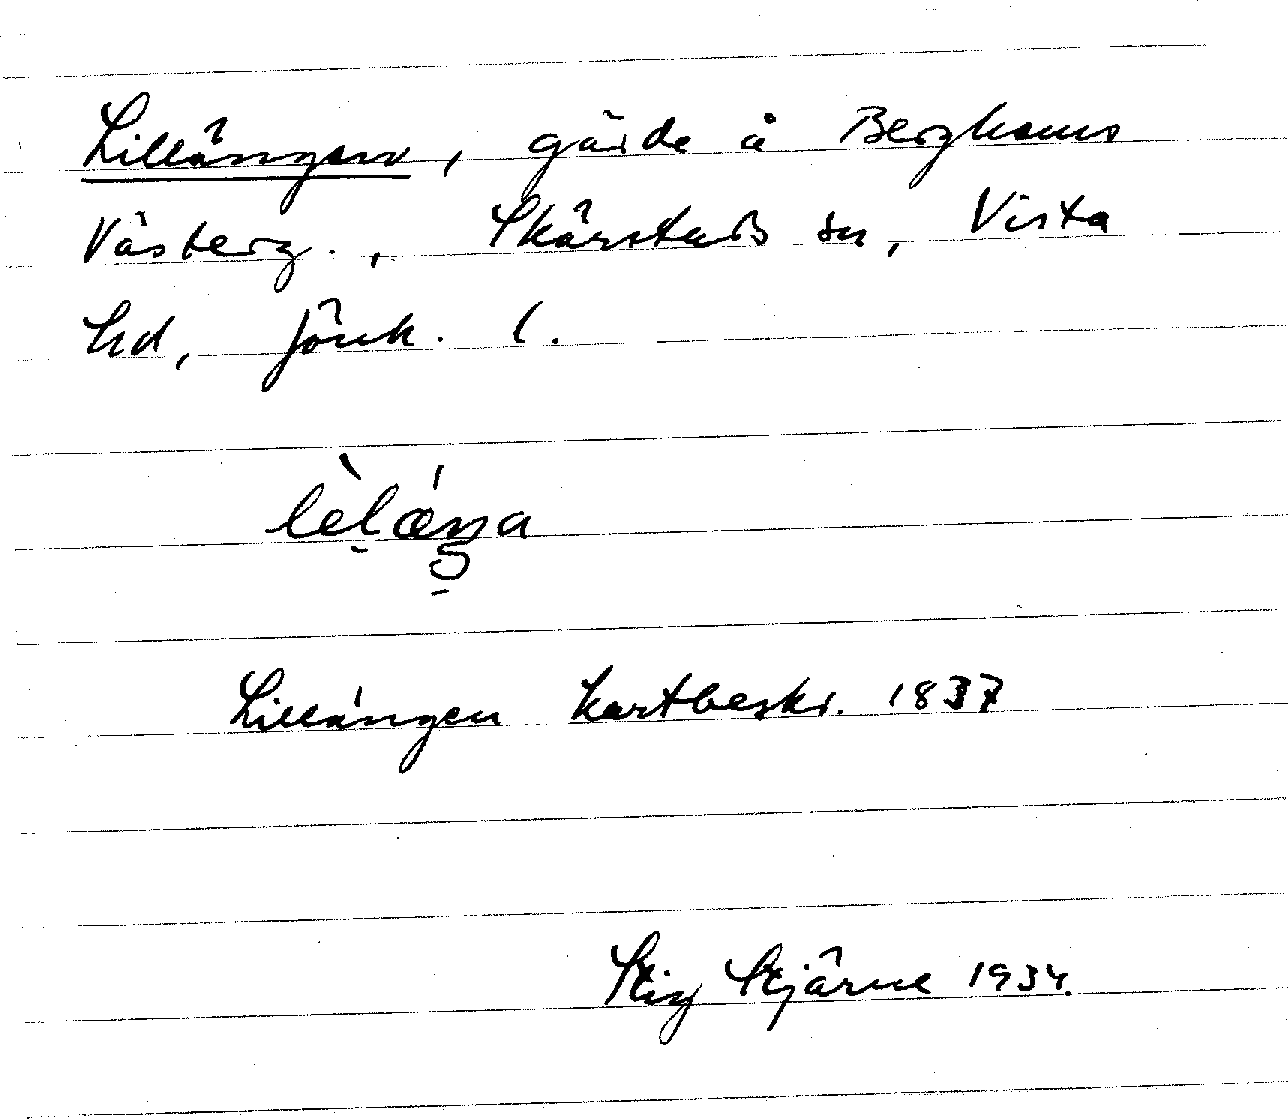 Lillängen, gärde å Berghems
Västerg., Skärstads sn, Vista
hd, Jönk. l.
Lillängen kartbeskr. 1837
Stig Stjärne 1934.